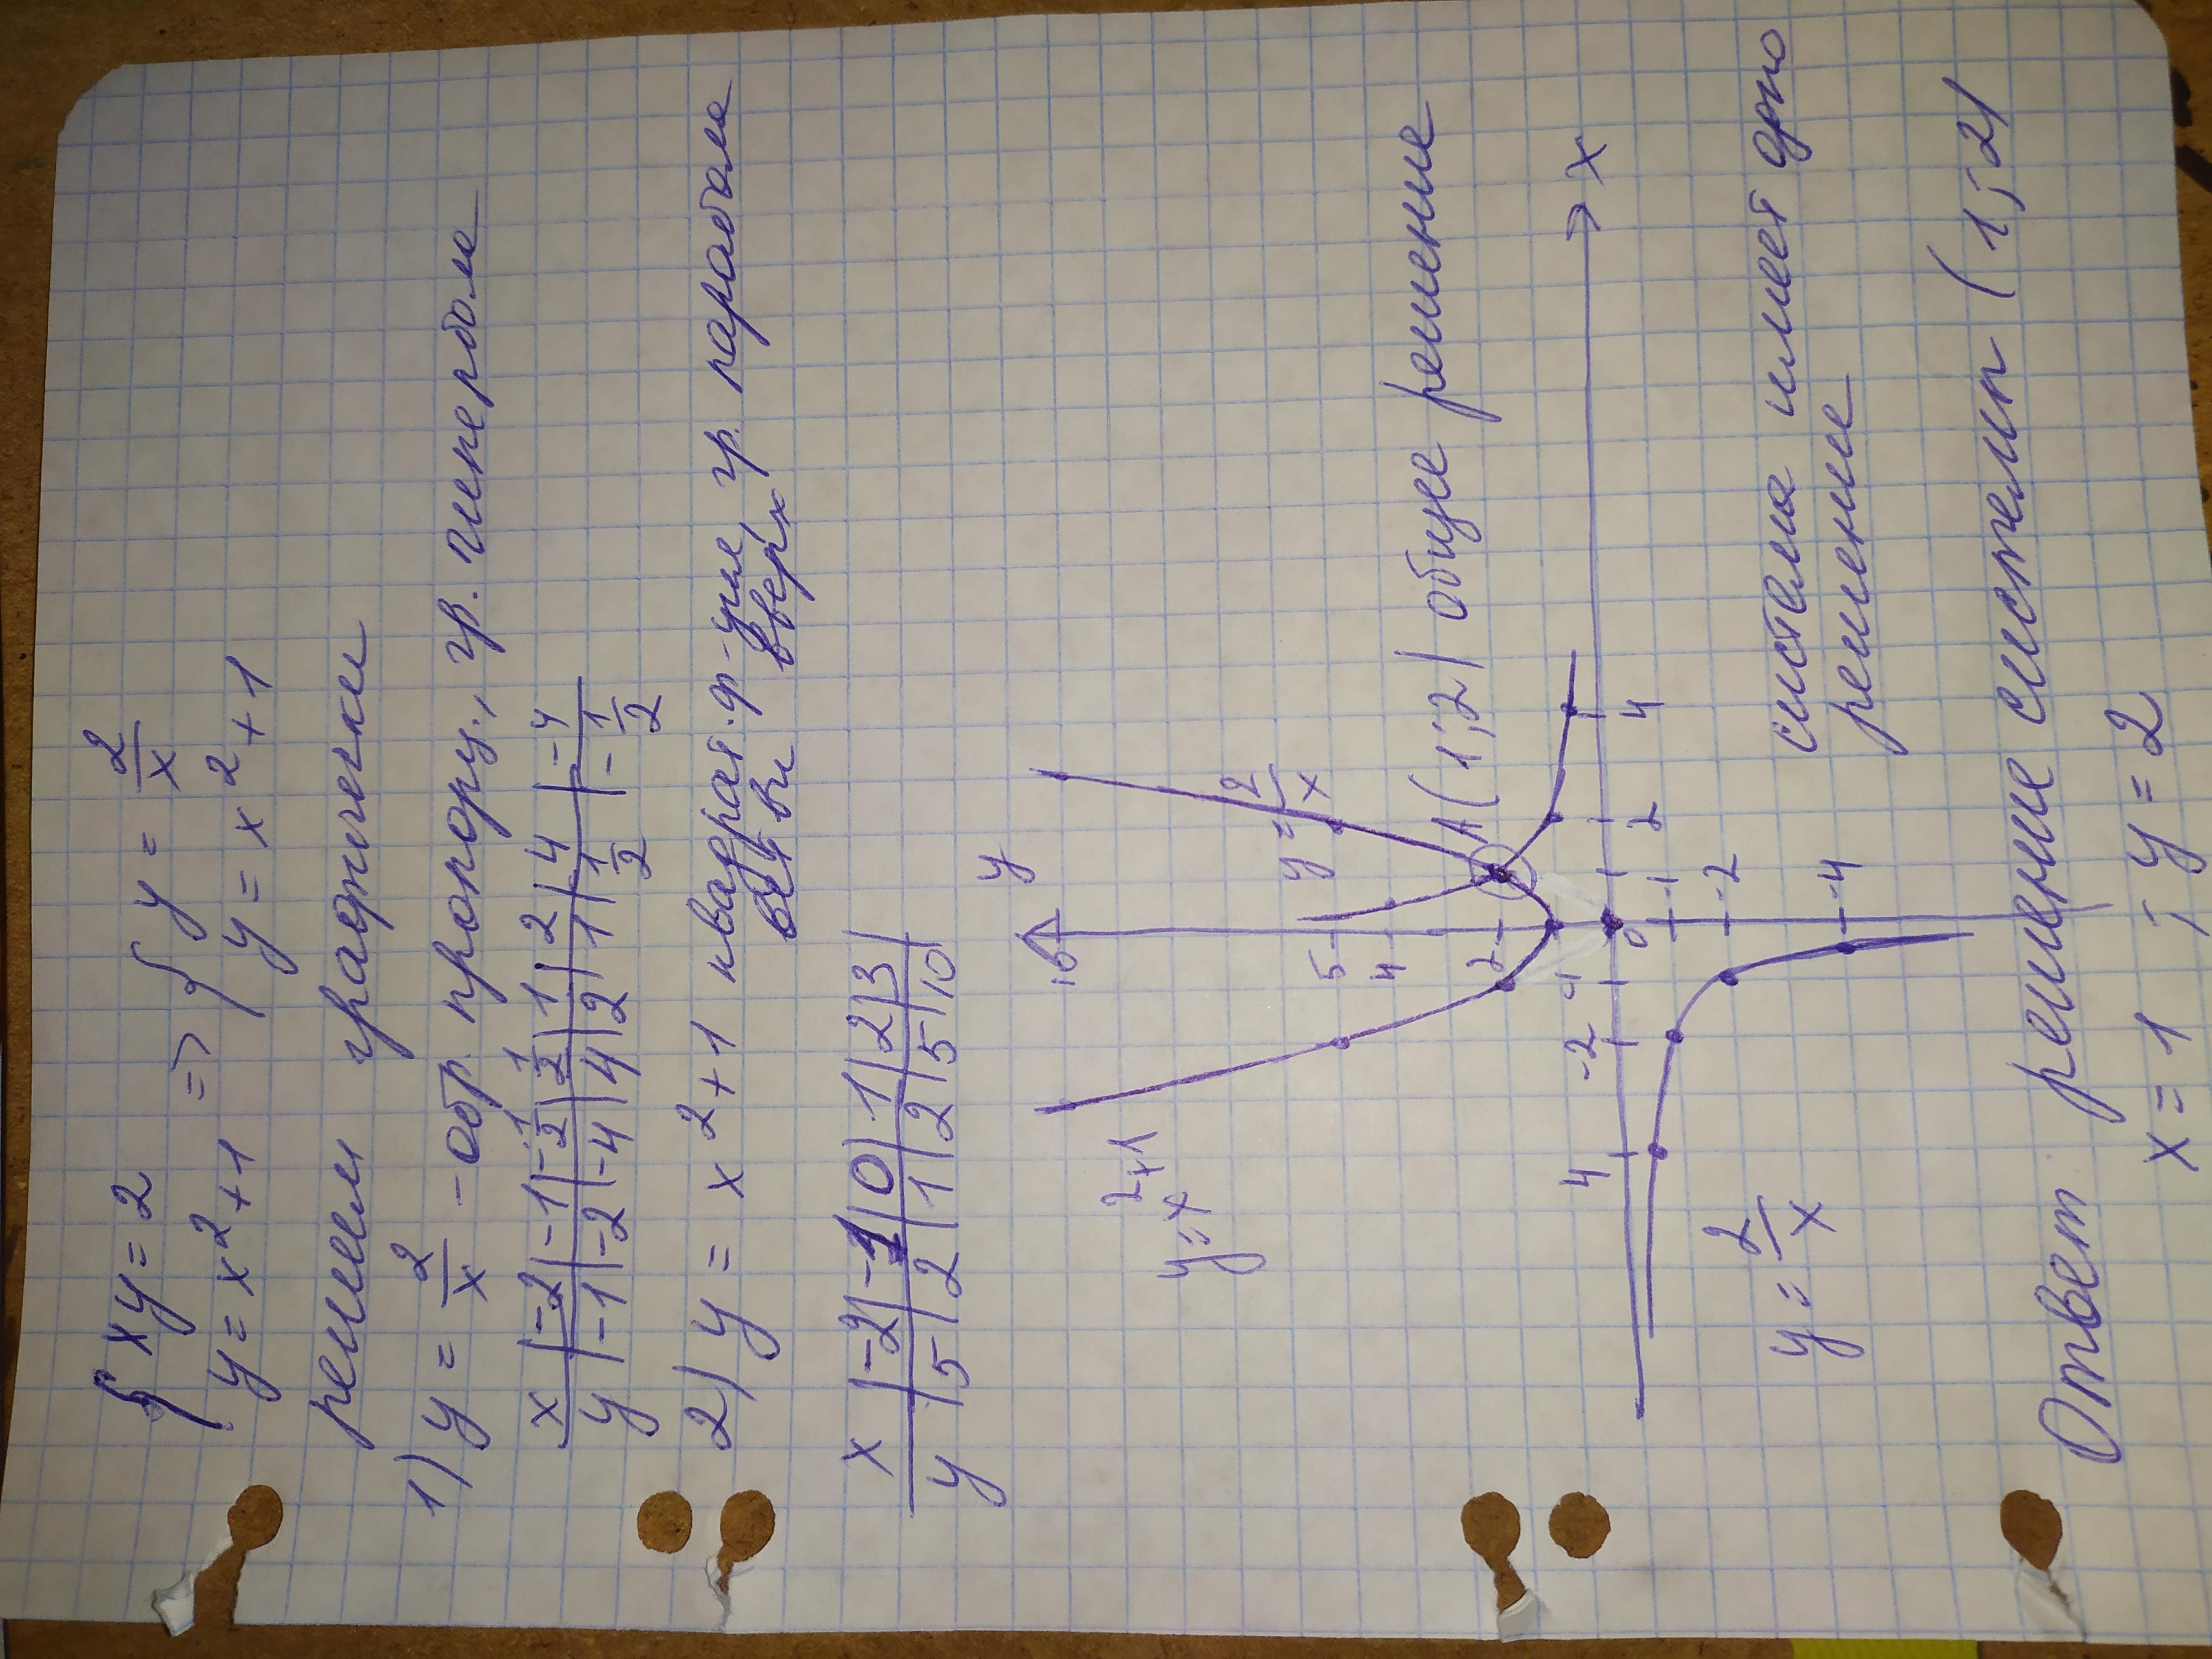 { xy = 2 => { y = 2/x
y = x² + 1 y = x² + 1
решим графически
1) y = 2/x - обр. пропорц., гр. гипербола
x | -2 | -1 | -1/2 | 1/2 | 1 | 2 | 4 | -4
y | -1 | -2 | -4 | 4 | 2 | 1 | 1/2 | -1/2
2) y = x² + 1 квадрат. ф-ция, гр. парабола
ветви вверх
x | -2 | -1 | 0 | 1 | 2 | 3
y | 5 | 2 | 1 | 2 | 5 | 10
y
10
y = x² + 1
y = 2/x
5
4
2
A (1; 2) общее решение
4 -2 -1 0 1 2 4 x
-1
-2
-4
y = 2/x
система имеет одно
решение
Ответ решение системы (1; 2)
x = 1 ; y = 2